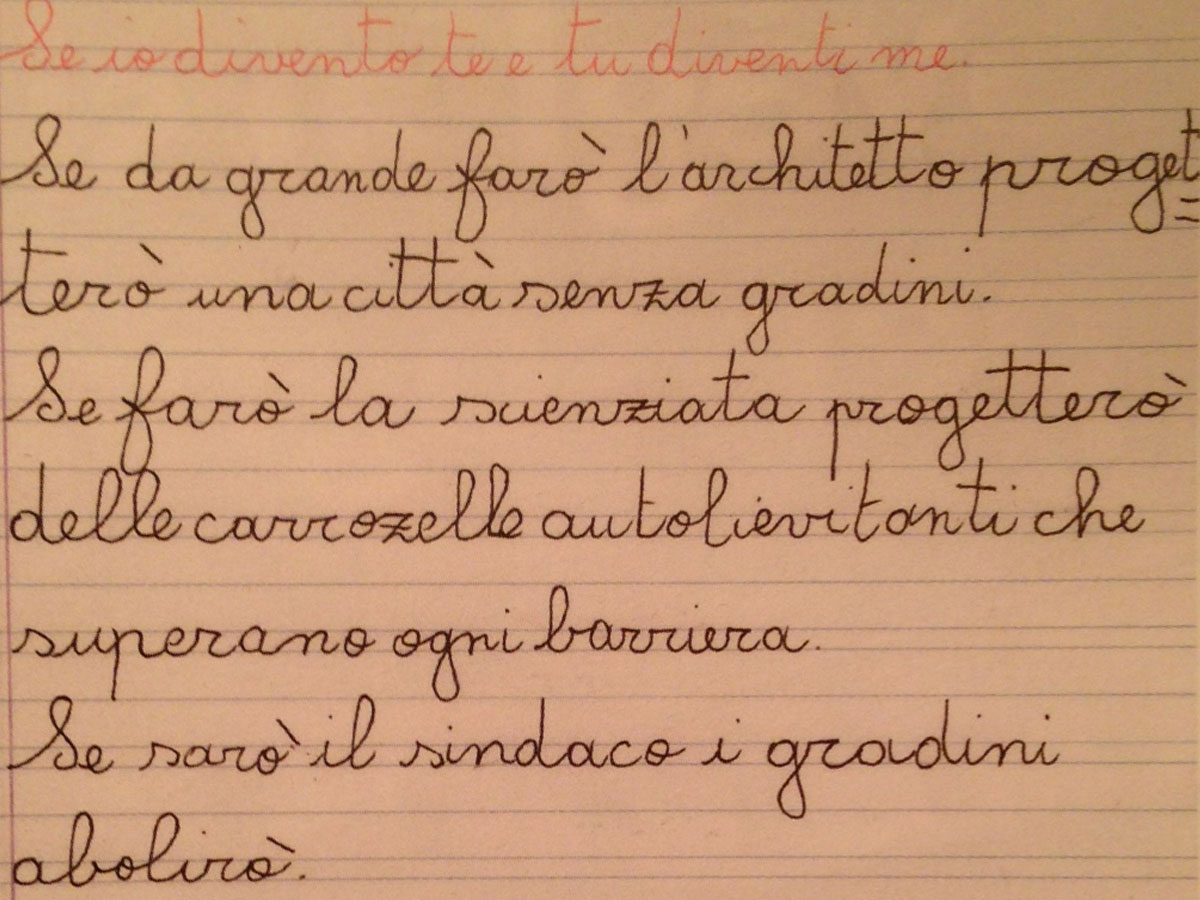 Se io divento te e tu diventi me.
Se da grande farò l'architetto proget=
terò una città senza gradini.
Se farò la scienziata progetterò
delle carrozelle autolievitanti che
superano ogni barriera.
Se sarò il sindaco i gradini
abolirò.